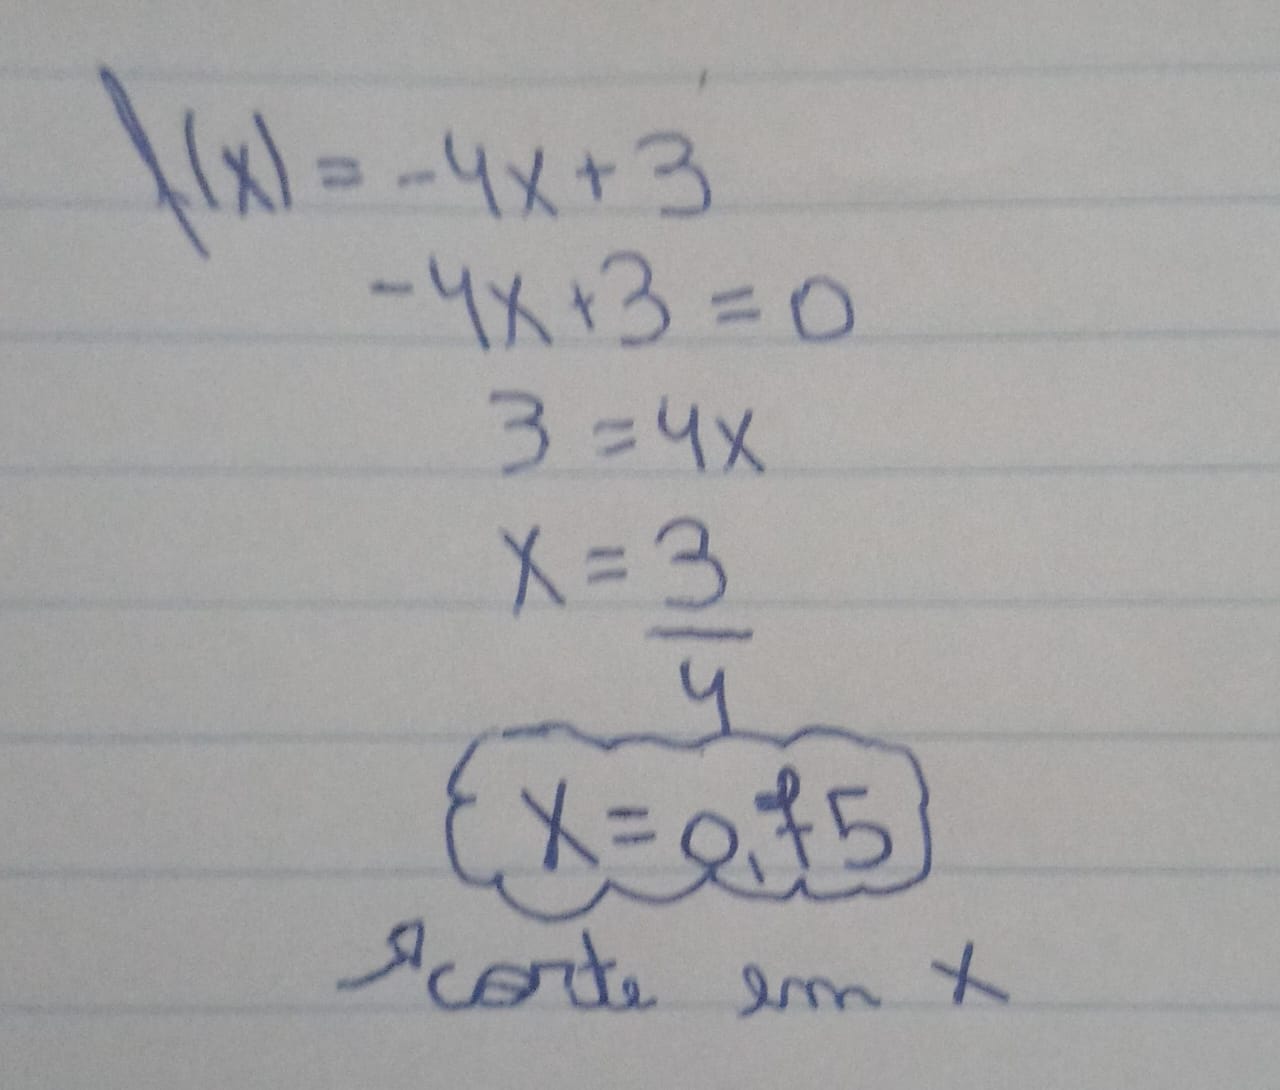 f(x) = -4x + 3
-4x + 3 = 0
3 = 4x
x = 3/4
x = 0,75
corte em x